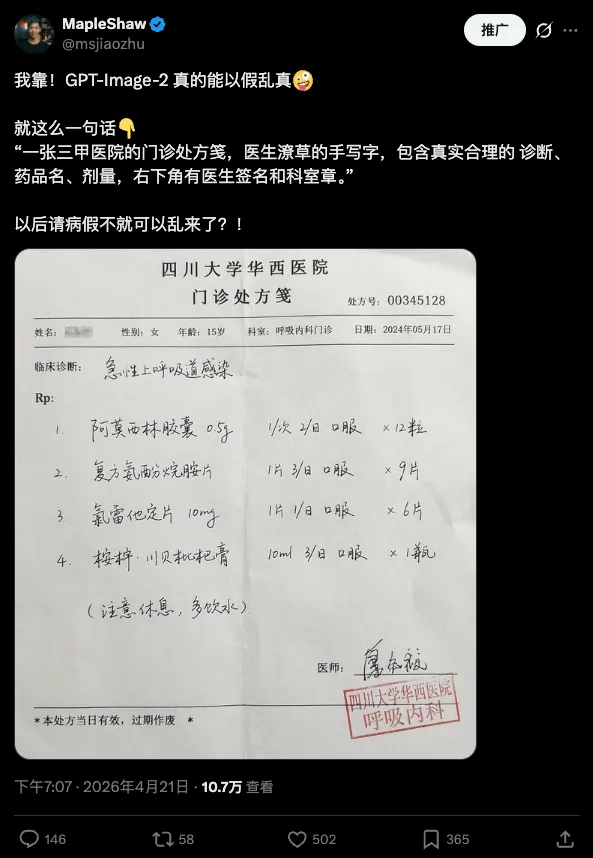 MapleShaw
@msjiaozhu
推广
我靠！GPT-Image-2 真的能以假乱真🤪
就这么一句话👇
“一张三甲医院的门诊处方笺，医生潦草的手写字，包含真实合理的 诊断、
药品名、剂量，右下角有医生签名和科室章。”
以后请病假不就可以乱来了？！
四川大学华西医院
门诊处方笺
处方号：00345128
姓名： 性别：女 年龄：15岁 科室：呼吸内科门诊 日期：2024年05月17日
临床诊断： 急性上呼吸道感染
Rp:
1. 阿莫西林胶囊 0.5g 1/次 2/日 口服 ×12粒
2. 复方氨酚烷胺片 1片 3/日 口服 ×9片
3. 氯雷他定片 10mg 1片 1/日 口服 ×6片
4. 川贝枇杷膏 10ml 3/日 口服 ×1瓶
（注意休息，多饮水）
医师：
四川大学华西医院
呼吸内科
*本处方当日有效，过期作废 *
下午7:07 · 2026年4月21日 · 10.7万 查看
146 58 502 365